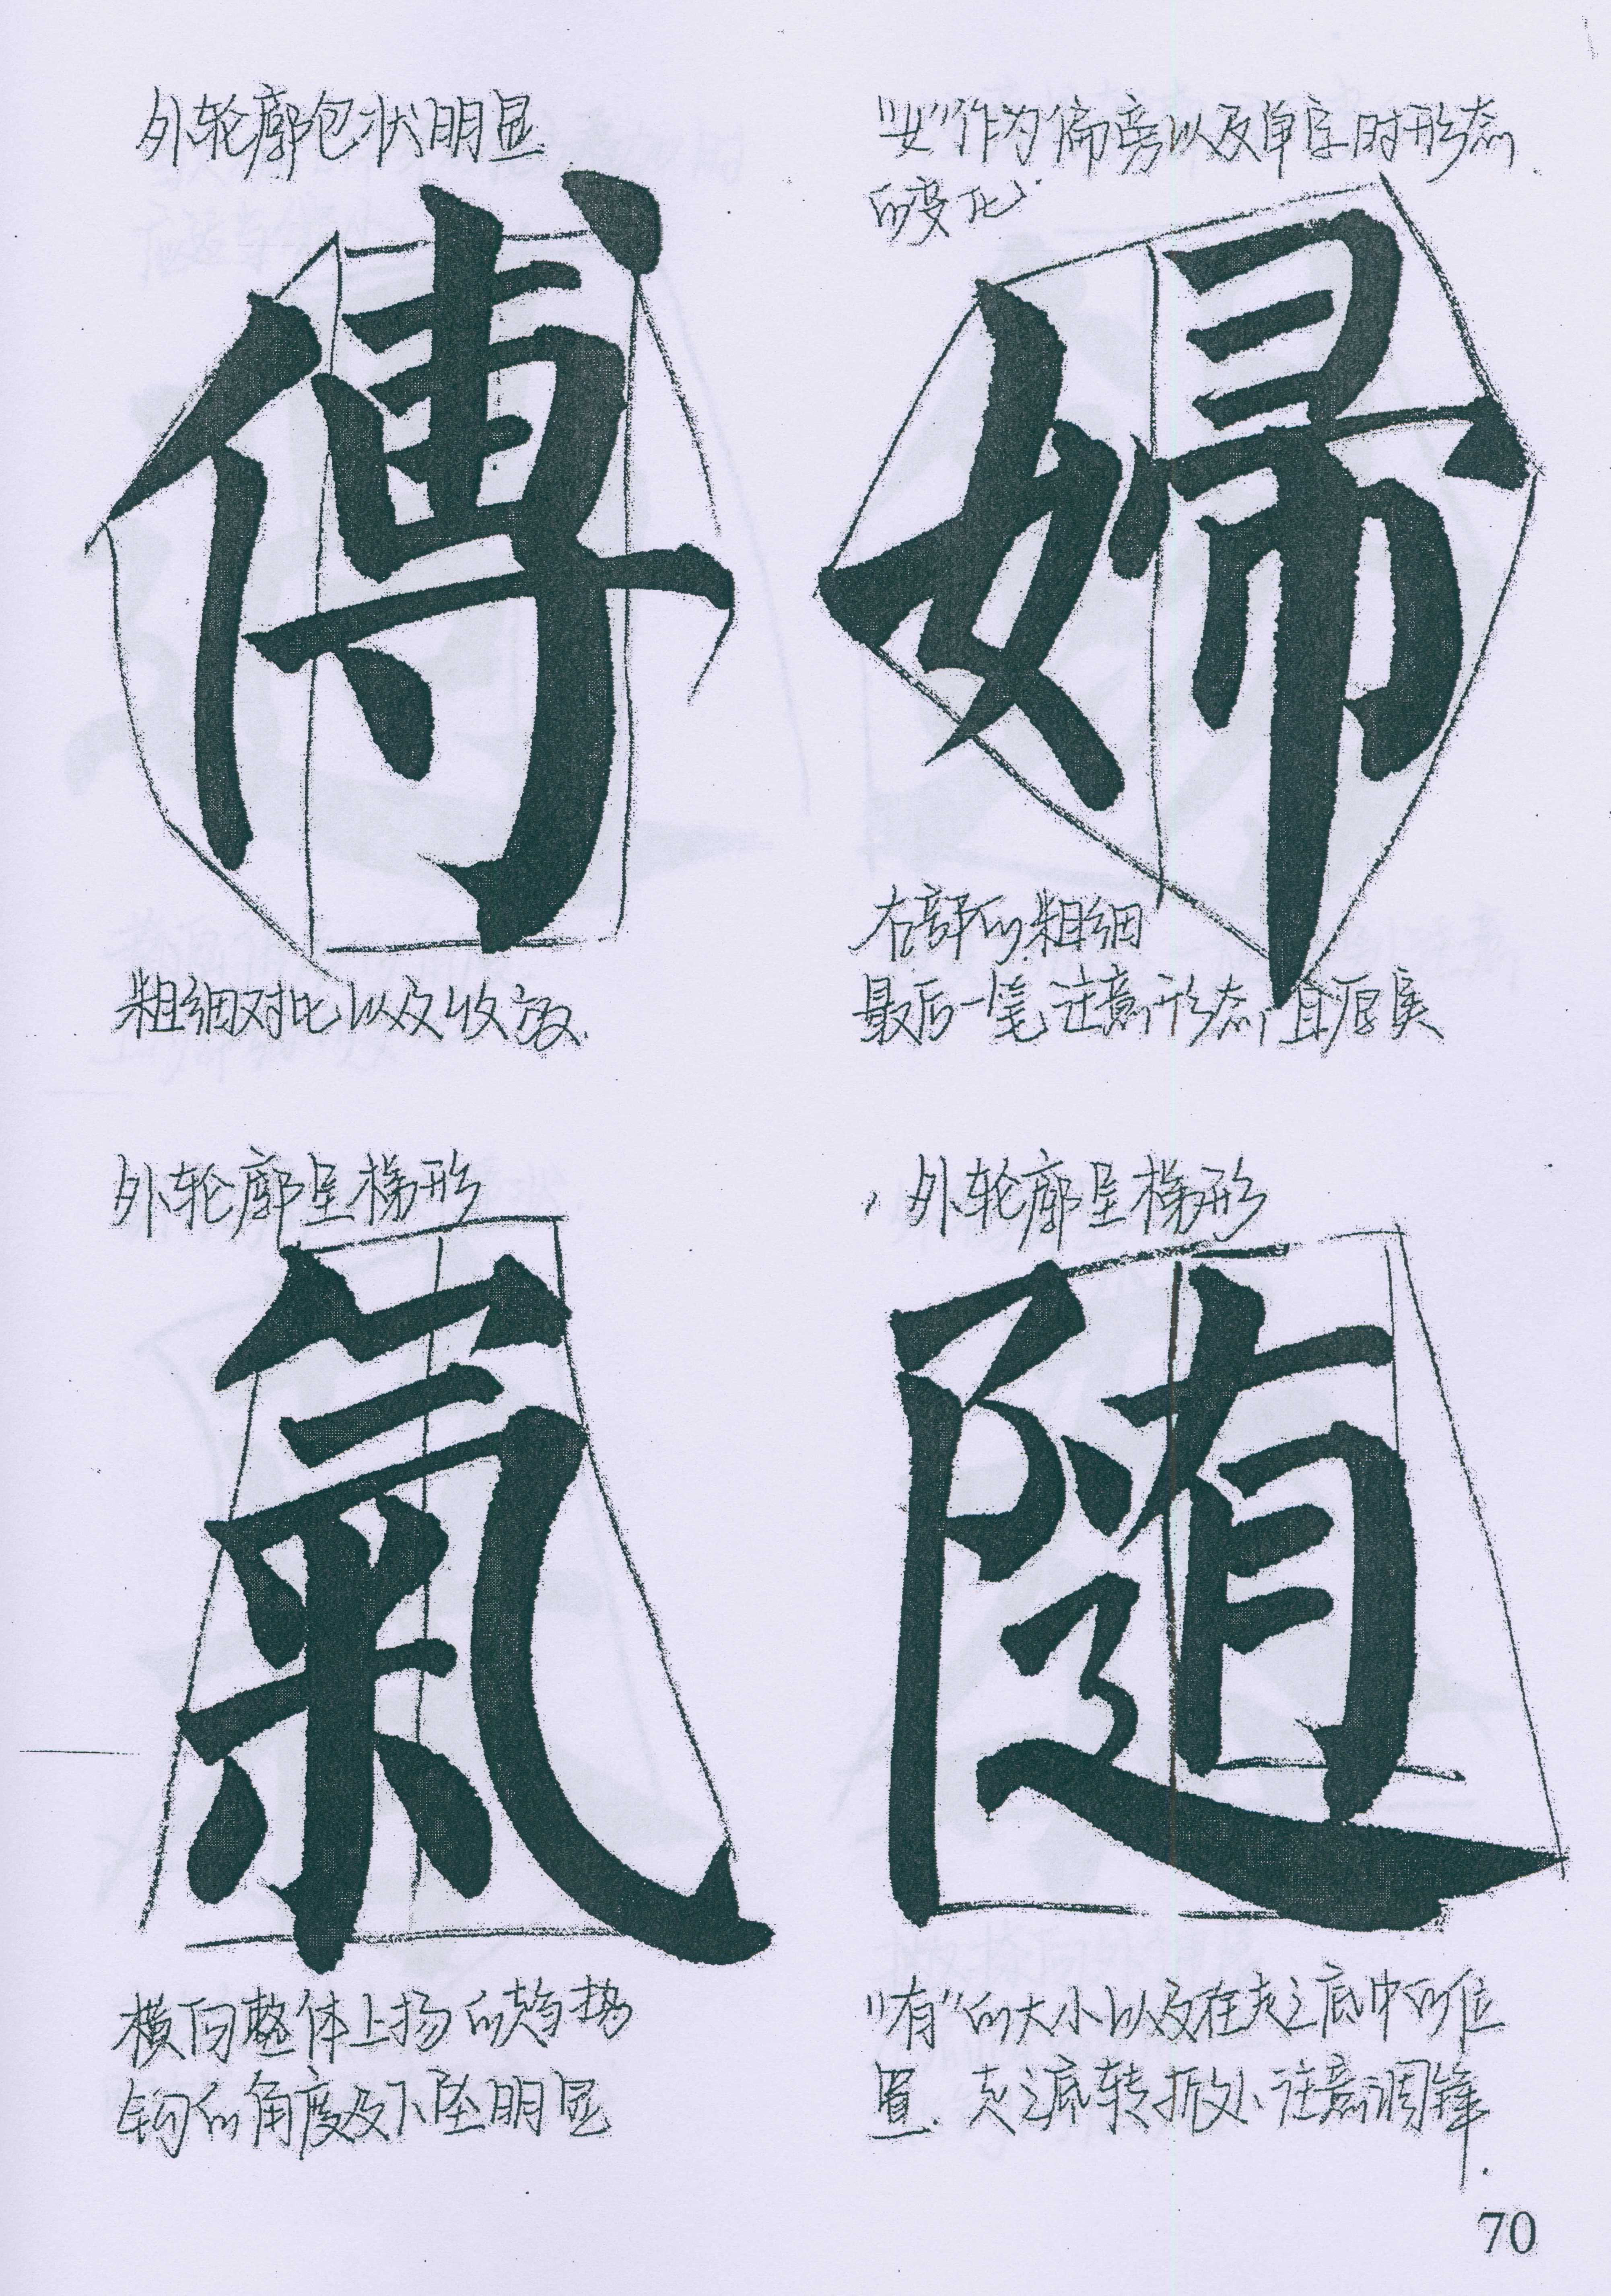 外轮廓包状明显
傅
粗细对比以及收放.
"女"作为偏旁以及单字时形态
的变化.
婦
右部的粗细
最后一笔注意形态,且厚实
外轮廓呈梯形
氣
横向整体上扬的趋势
钩的角度及下坠明显
外轮廓呈梯形
随
"有"的大小以及在走之底中的位
置.走之底转折处注意调锋.
70